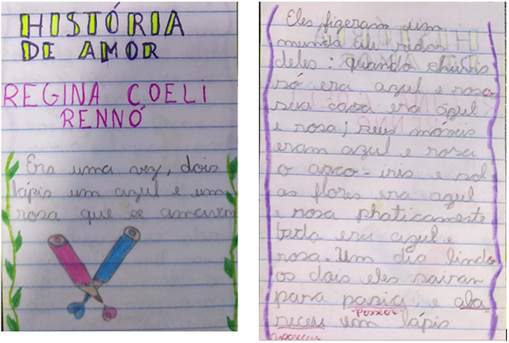 HISTÓRIA
DE AMOR
REGINA COELI
RENNÓ
Era uma vez, dois
lápis um azul e um
rosa que se amavam
Eles fizeram um
mundo
deles: quando chuvia
só era azul e rosa
sua casa era azul
e rosa; seus móveis
eram azul e rosa
o arco-iris e sol
as flores era azul
e rosa phaticamente
tudo era azul e
rosa. Um dia lindo
os dois eles sairan
para pasia, e aba
passear
receu um lápis